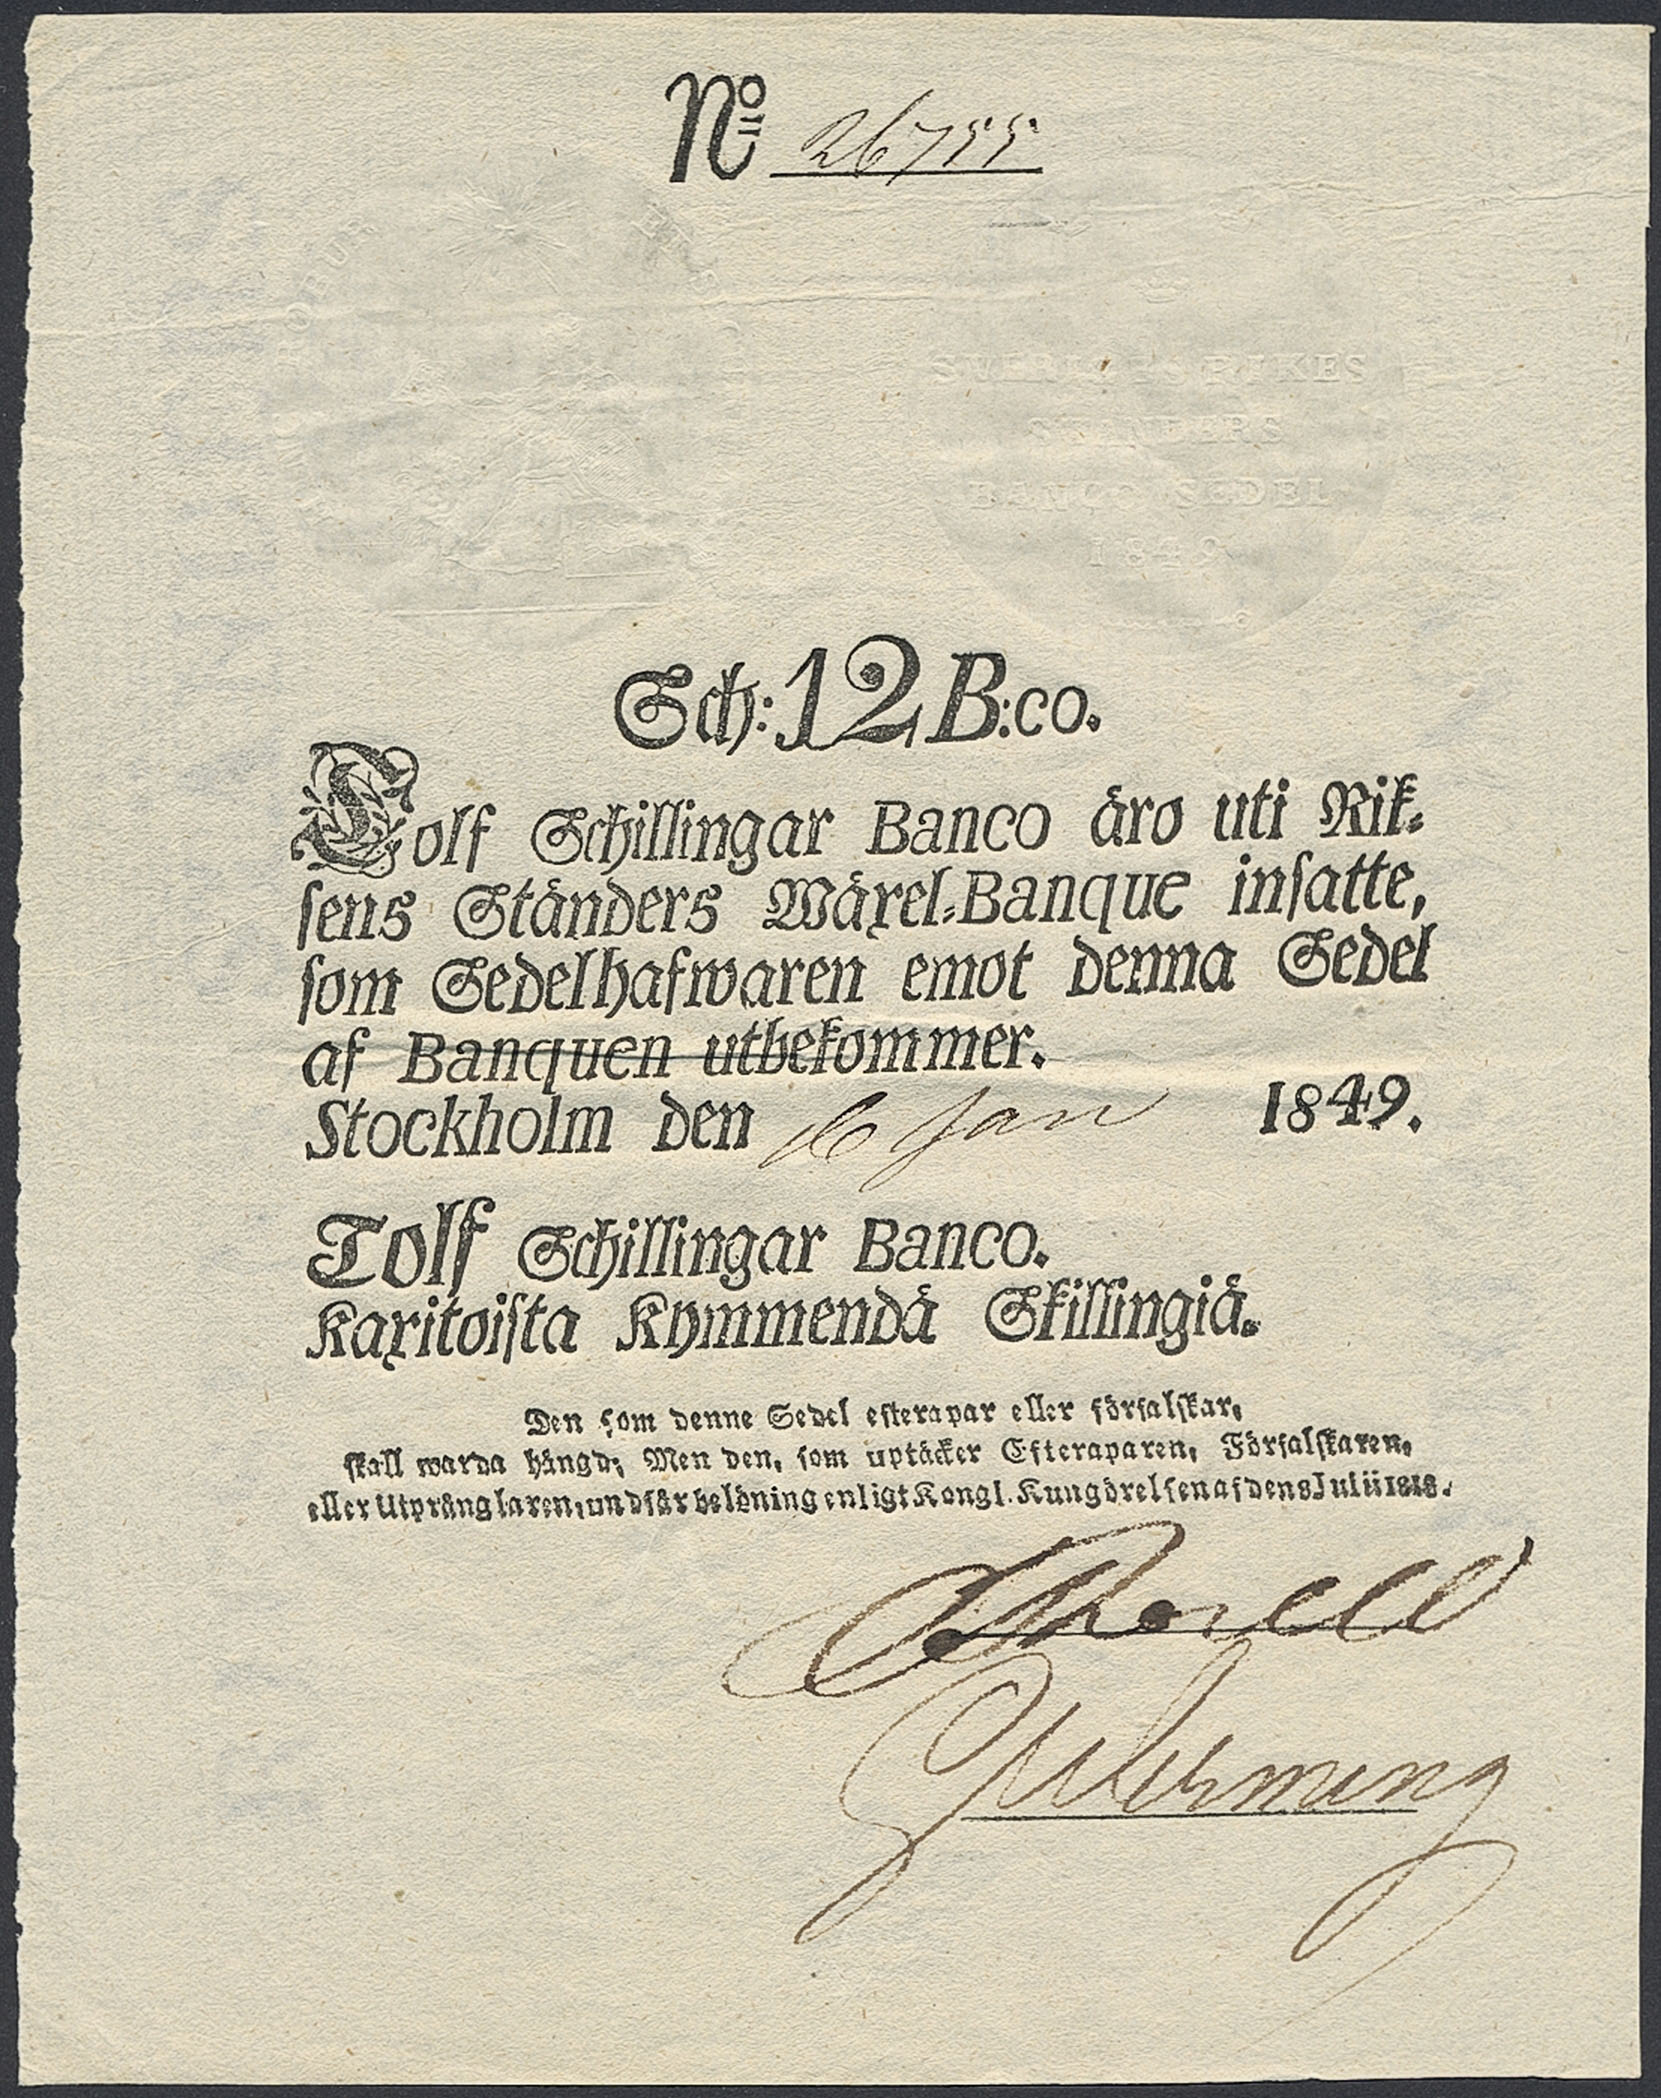 No 26755
ROBUR
SVERIGES RIKES
STÄNDERS
BANCO SEDEL
1849
Sch: 12 B:co.
Tolf Schillingar Banco äro uti Rik=
sens Ständers Wäxel=Banque insatte,
som Sedelhafwaren emot denna Sedel
af Banquen utbekommer.
Stockholm den 16 Jan 1849.
Tolf Schillingar Banco.
Kaxitoista Kymmendä Skillingiä.
Den som denne Sedel efterapar eller förfalskar,
skall warda hängd; Men den, som uptäcker Efteraparen, Förfalskaren,
eller Utprånglaren, undfår belöning enligt Kongl. Kungörelsen af den 8 Julii 1818.